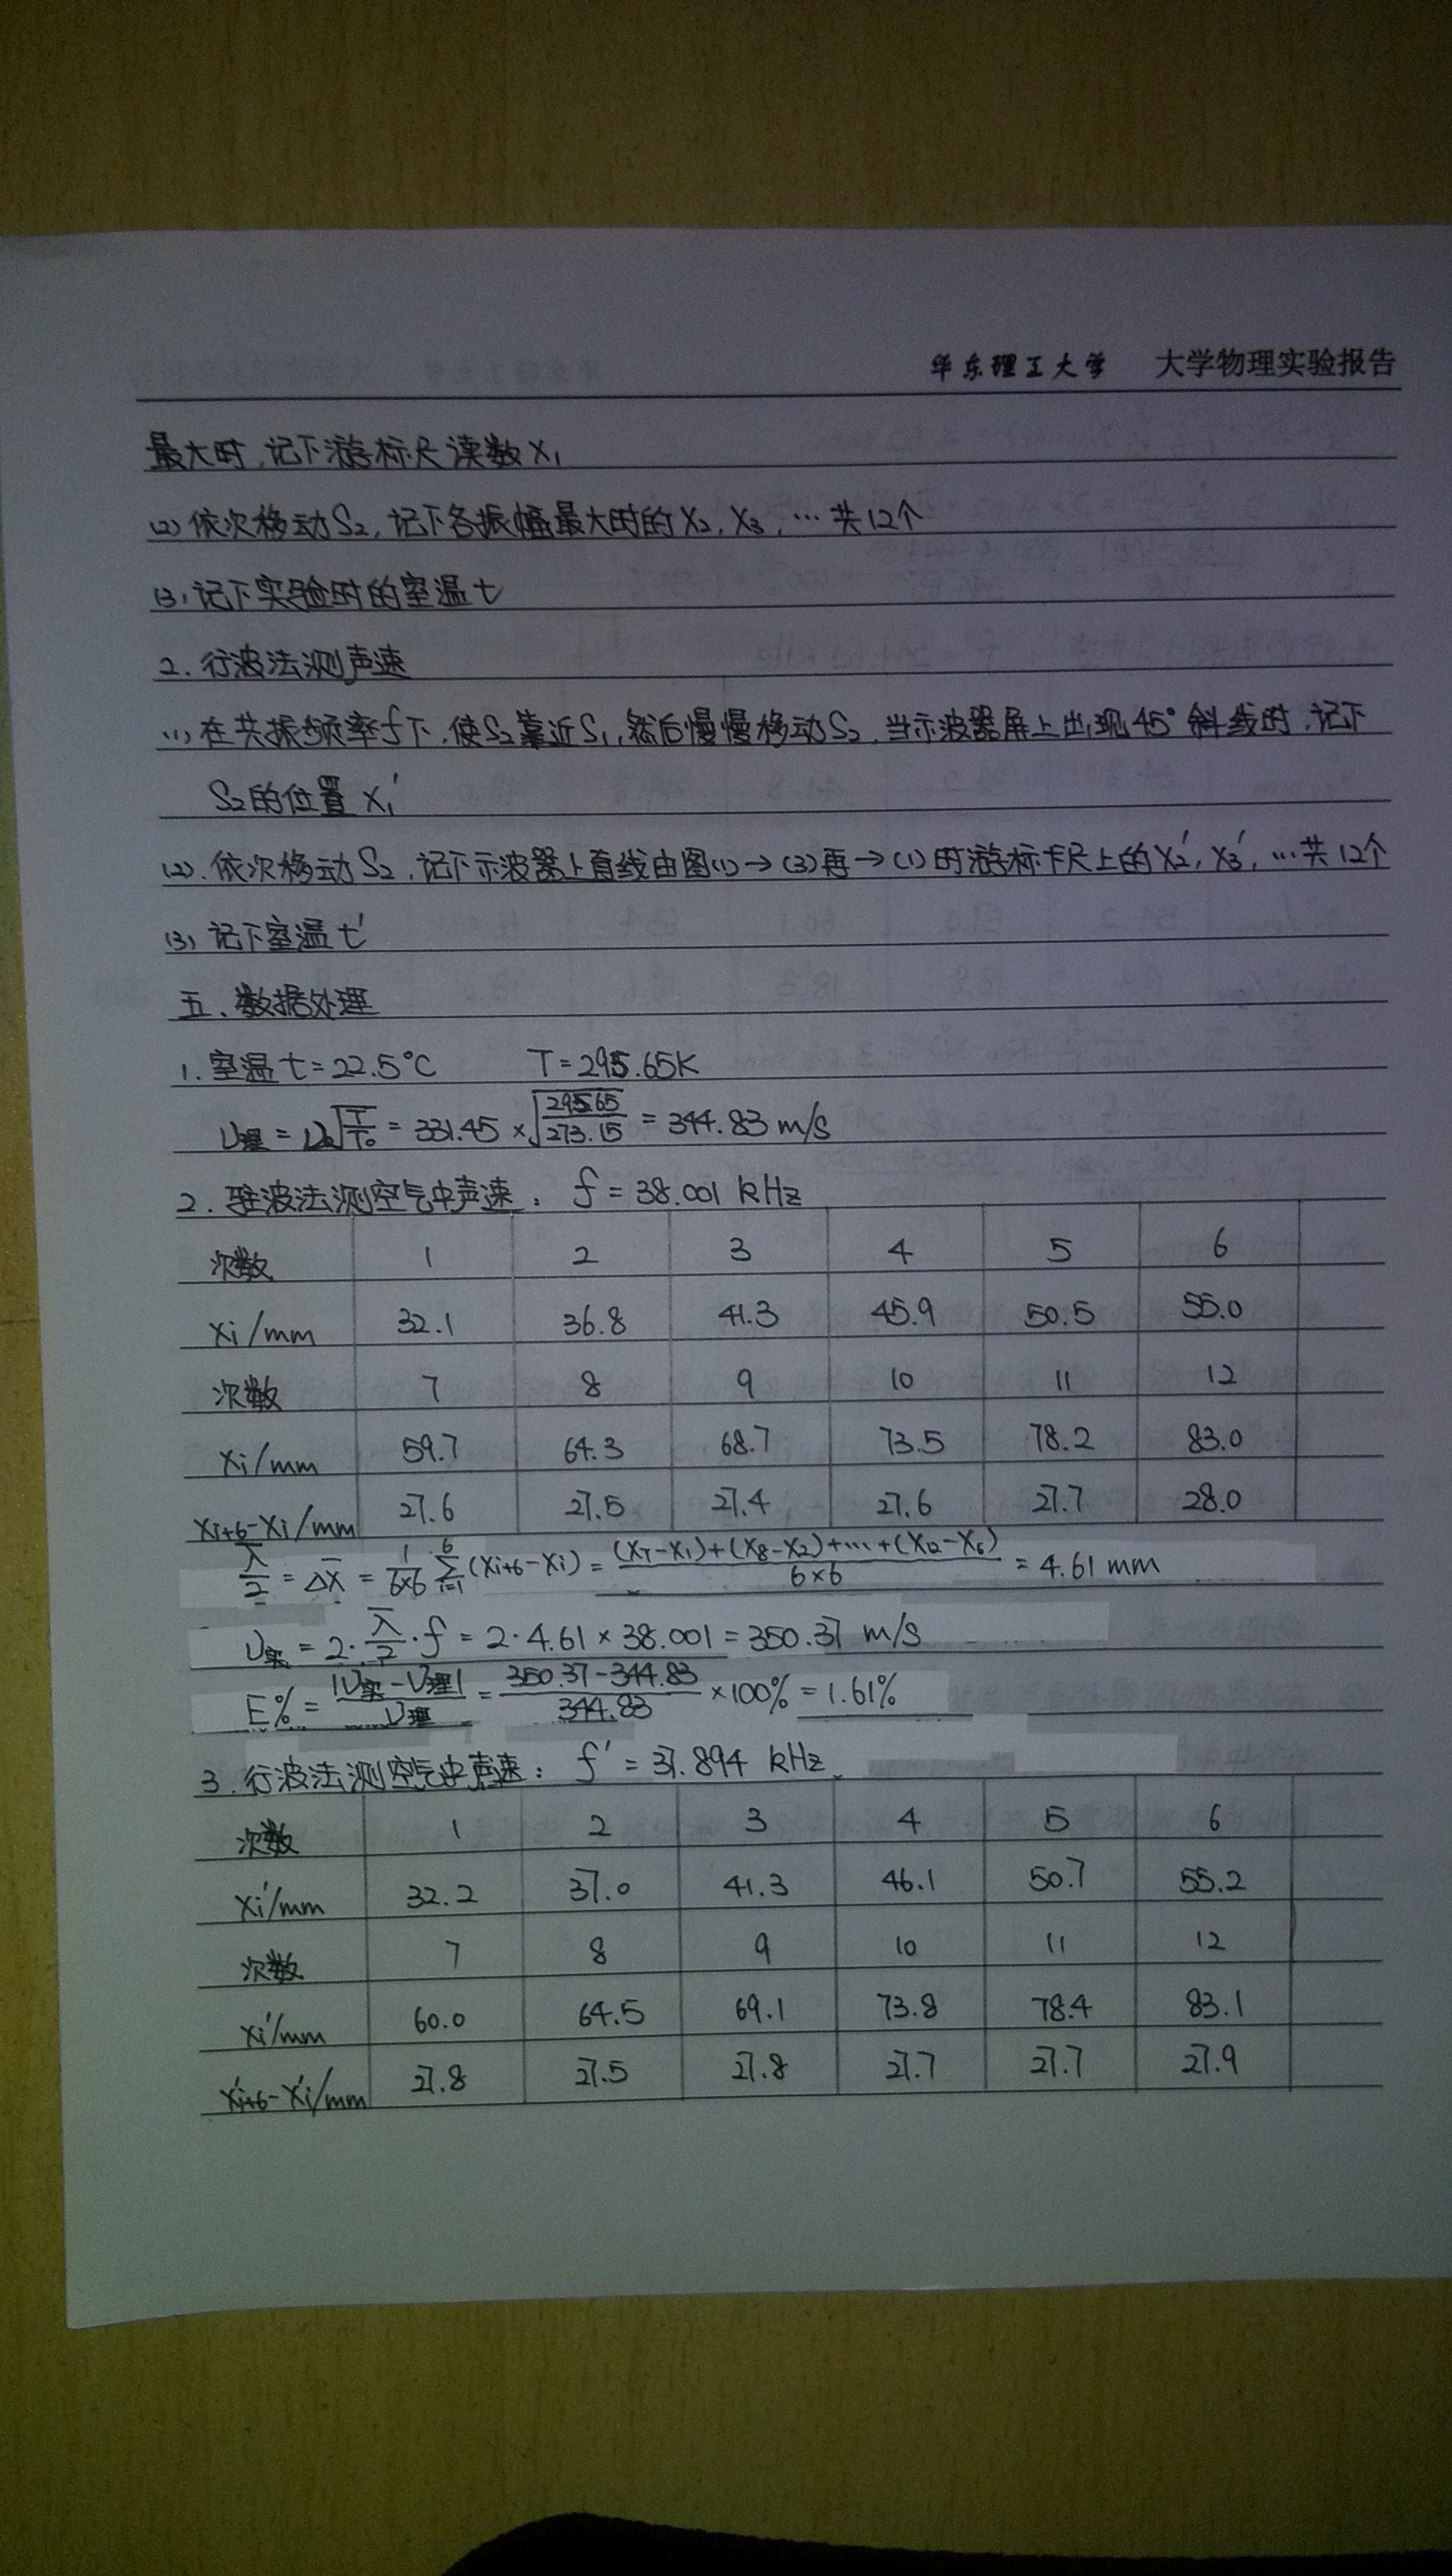 华东理工大学 大学物理实验报告
最大时,记下游标尺读数X₁
(2) 依次移动S₂,记下各振幅最大时的X₂,X₃,…共12个
(3) 记下实验时的室温t
2. 行波法测声速
(1) 在共振频率f下,使S₂靠近S₁,然后慢慢移动S₂,当示波器屏上出现45°斜线时,记下
S₂的位置X₁′
(2). 依次移动S₂,记下示波器上直线由图(1)→(3)再→(1)时游标卡尺上的X₂′,X₃′,…共12个
(3) 记下室温t′
五、数据处理
1. 室温t=22.5°C T=295.65K
υ理=υ₀√(T/T₀)=331.45×√(295.65/273.15)=344.83 m/s
2. 驻波法测空气中声速: f=38.001 kHz
次数 1 2 3 4 5 6
Xi/mm 32.1 36.8 41.3 45.9 50.5 55.0
次数 7 8 9 10 11 12
Xi/mm 59.7 64.3 68.7 73.5 78.2 83.0
Xi+6-Xi/mm 27.6 27.5 27.4 27.6 27.7 28.0
λ̅/2=Δx̅=1/(6×6) Σ(i=1→6)(Xi+6-Xi)=((X₇-X₁)+(X₈-X₂)+…+(X₁₂-X₆))/(6×6)=4.61 mm
υ实=2·λ̅/2·f=2·4.61×38.001=350.37 m/s
E%=|υ实-υ理|/υ理=(350.37-344.83)/344.83×100%=1.61%
3. 行波法测空气中声速: f′=37.894 kHz
次数 1 2 3 4 5 6
Xi′/mm 32.2 37.0 41.3 46.1 50.7 55.2
次数 7 8 9 10 11 12
Xi′/mm 60.0 64.5 69.1 73.8 78.4 83.1
X′i+6-X′i/mm 27.8 27.5 27.8 27.7 27.7 27.9